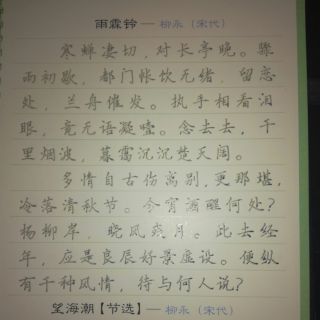 雨霖铃 — 柳永（宋代）
寒蝉凄切，对长亭晚。骤
雨初歇，都门帐饮无绪，留恋
处，兰舟催发。执手相看泪
眼，竟无语凝噎。念去去，千
里烟波，暮霭沉沉楚天阔。
多情自古伤离别，更那堪，
冷落清秋节。今宵酒醒何处？
杨柳岸，晓风残月。此去经
年，应是良辰好景虚设。便纵
有千种风情，待与何人说？
望海潮【节选】 — 柳永（宋代）